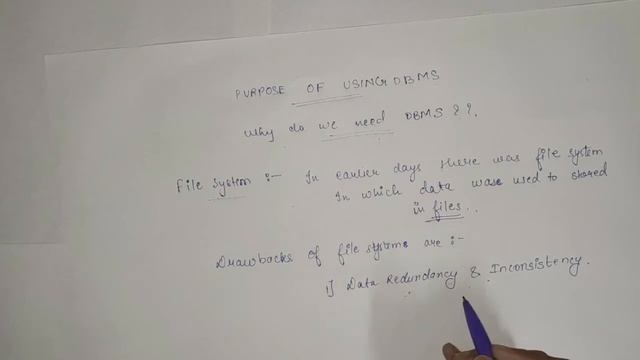 PURPOSE OF USING DBMS
Why do we need DBMS ??.
File System :- In earlier days there was file system
In which data was used to stored
in files..
Drawbacks of file system are :-
1] Data Redundancy & Inconsistency.